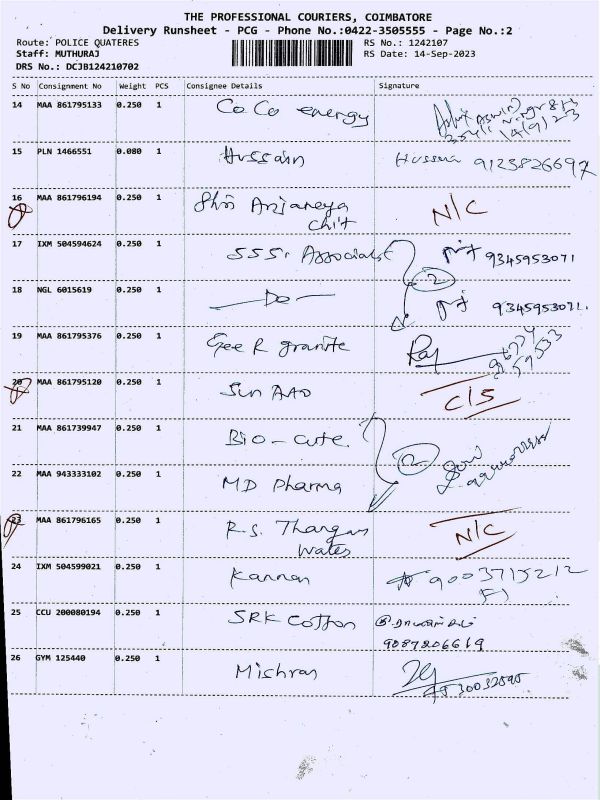 THE PROFESSIONAL COURIERS, COIMBATORE
Delivery Runsheet - PCG - Phone No.:0422-3505555 - Page No.:2
Route: POLICE QUATERES RS No.: 1242107
Staff: MUTHURAJ RS Date: 14-Sep-2023
DRS No.: DCJB124210702
S No Consignment No Weight PCS Consignee Details Signature
14 MAA 861795133 0.250 1 CoCo energy 14/9/23
15 PLN 1466551 0.080 1 Hussain Hussain 9123826697
16 MAA 861796194 0.250 1 Shri Anjaneya N/C
Chit
17 IXM 504594624 0.250 1 SSSi Associates 2 9345953071
18 NGL 6015619 0.250 1 — Do — 9345953071.
19 MAA 861795376 0.250 1 Gee R granite Raj
20 MAA 861795120 0.250 1 Sun Auto C/S
21 MAA 861739947 0.250 1 Bio-cute. 2
22 MAA 943333102 0.250 1 MD Pharma
23 MAA 861796165 0.250 1 R.S. Thangam N/C
Wates
24 IXM 504599021 0.250 1 Kannan 9003715212
25 CCU 200080194 0.250 1 SRK Cotton
9087206619
26 GYM 125440 0.250 1 Mishran